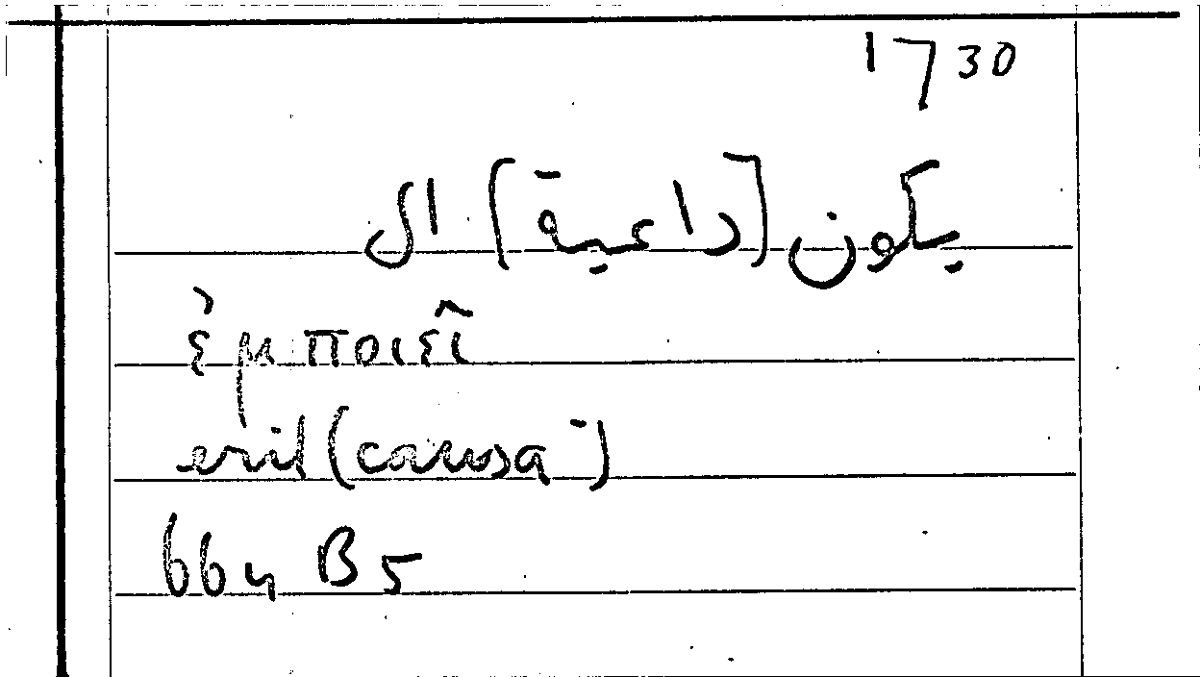 1730
يكون [داعية] ال
ἐμποιεῖ
erit (causa)
664 B 5